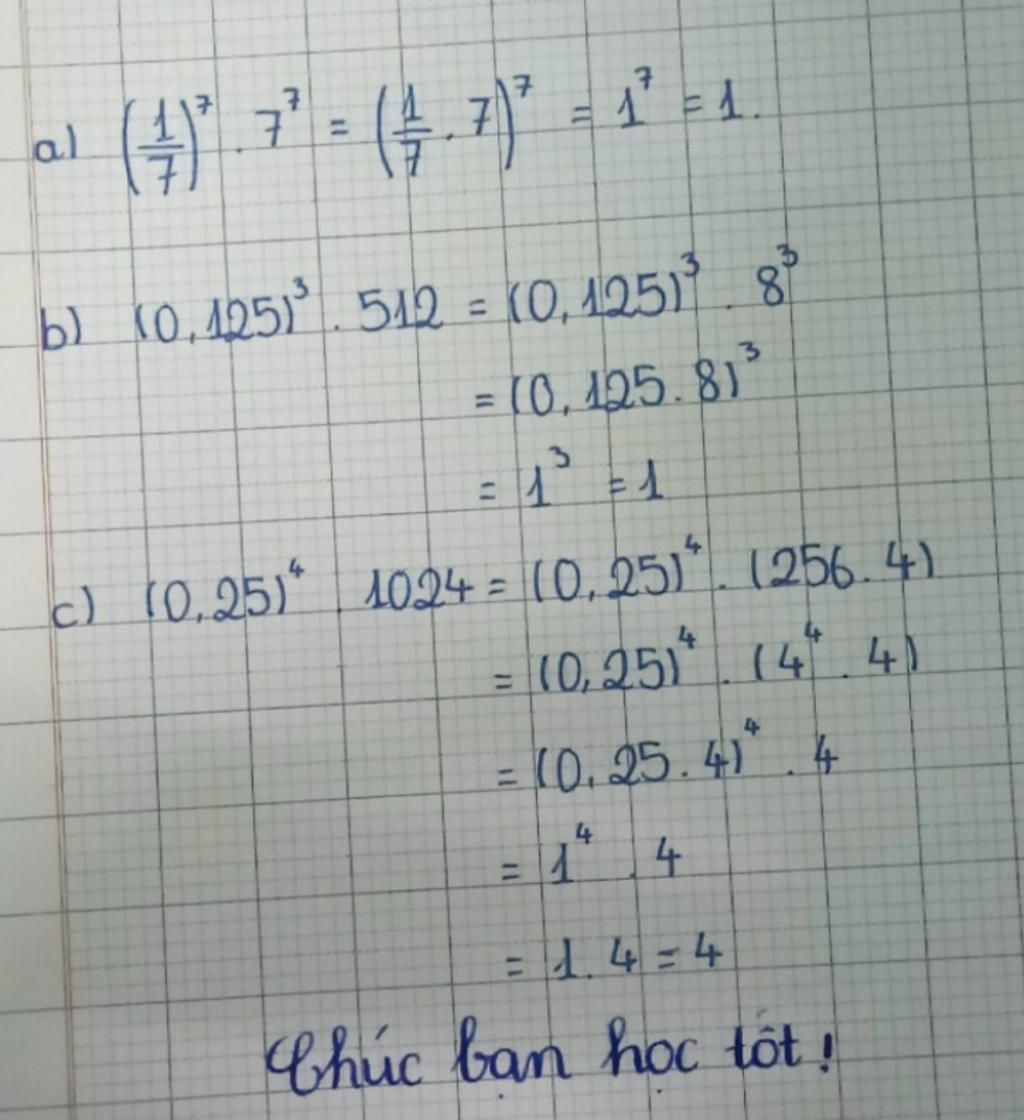 a) (1/7)⁷ . 7⁷ = (1/7 . 7)⁷ = 1⁷ = 1.
b) (0,125)³ . 512 = (0,125)³ . 8³
= (0,125.8)³
= 1³ = 1
c) (0,25)⁴ . 1024 = (0,25)⁴ . (256.4)
= (0,25)⁴ . (4⁴ . 4)
= (0,25.4)⁴ . 4
= 1⁴ . 4
= 1.4 = 4
Chúc bạn học tốt!